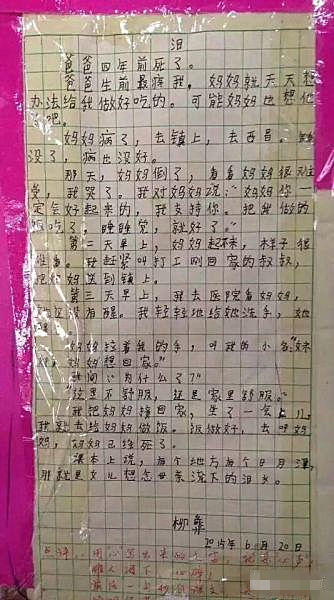 泪
爸爸四年前死了。
爸爸生前最疼我，妈妈就天天想
办法给我做好吃的。可能妈妈也想他
了吧。
妈妈病了，去镇上，去西昌。
没了，病也没好。
那天，妈妈倒了，看看妈妈很难
受，我哭了。我对妈妈说："妈妈你一
定会好起来的，我支持你。把我做的
饭吃了，睡睡觉，就好了。"
第二天早上，妈妈起不来，样子很
难看。我赶紧叫打工刚回家的叔叔，
把妈妈送到镇上。
第三天早上，我去医院看妈妈，
她还没有醒。我轻轻地给她洗手，她
妈妈拉着我的手，叫我的小名：
妈妈想回家。"
我问："为什么了？"
"这里不舒服，还是家里舒服。"
我把妈妈接回家，坐了一会儿，
我就去给妈妈做饭。饭做好，去叫妈
妈，妈妈已经死了。
课本上说，有个地方有个日月潭，
那就是女儿想念母亲流下的泪水。
柳彝
2015年6月20日